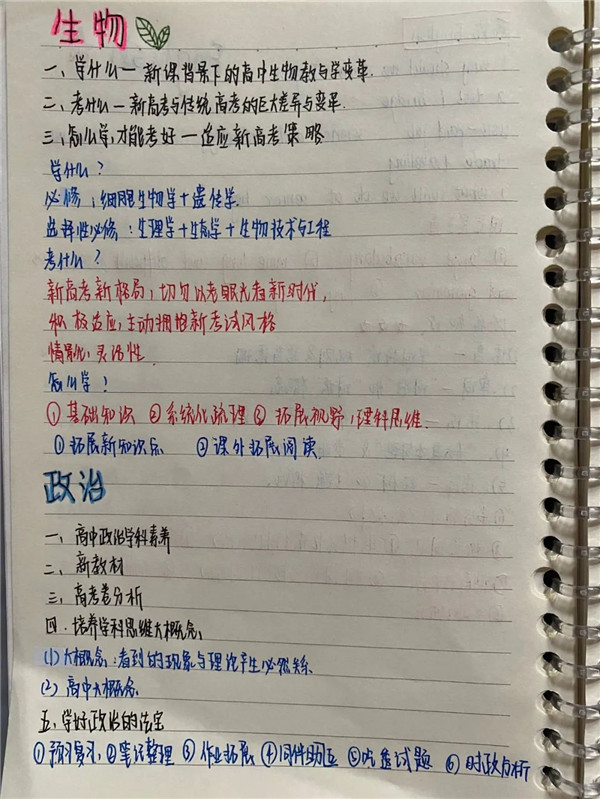 生物
一、学什么—新课背景下的高中生物教与学变革.
二、考什么—新高考与传统高考的巨大差异与变革.
三、怎么学,才能考好—适应新高考策略
学什么?
必修:细胞生物学+遗传学.
选择性必修:生理学+生态学+生物技术与工程
考什么?
新高考新格局,切勿以老眼光看新时代,
积极适应,主动拥抱新考试风格
情景化,灵活性.
怎么学?
①基础知识 ②系统化梳理 ③拓展视野,理科思维.
①拓展新知识点 ②课外拓展阅读.
政治
一、高中政治学科素养
二、新教材
三、高考卷分析
四.培养学科思维大概念
(1)大概念:看到的现象与理论产生必然关系.
(2)高中大概念
五、学好政治的法宝
①预习复习,②笔记整理 ③作业拓展 ④同伴助互 ⑤吃透试题 ⑥时政分析